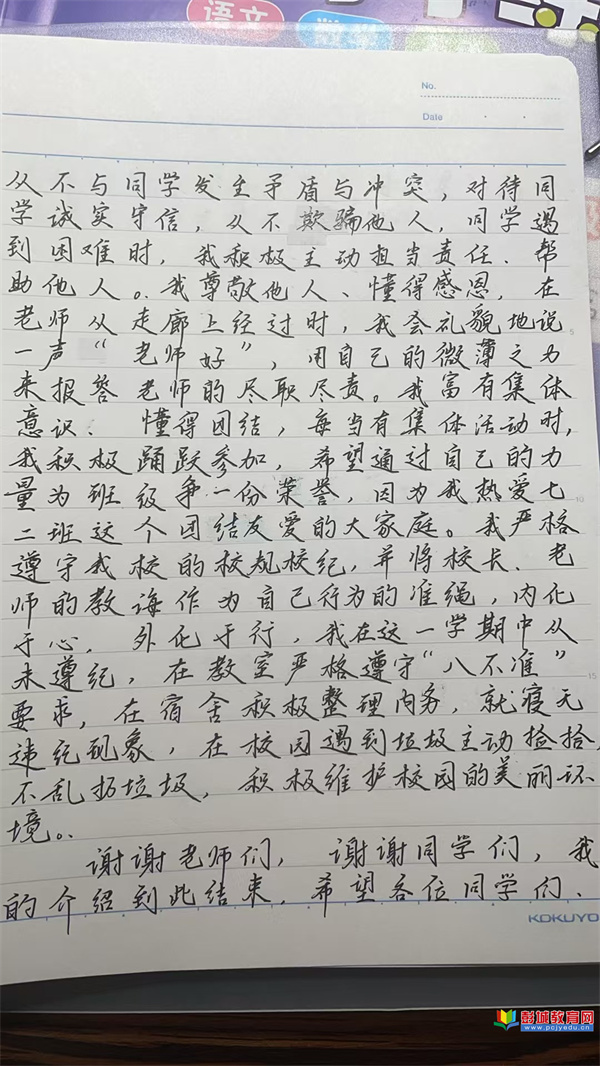 语文
No.
Date
从不与同学发生矛盾与冲突，对待同
学诚实守信，从不欺骗他人，同学遇
到困难时，我积极主动担当责任、帮
助他人。我尊敬他人、懂得感恩，在
老师从走廊上经过时，我会礼貌地说
一声“老师好”，用自己的微薄之力
来报答老师的尽职尽责。我富有集体
意识、懂得团结，每当有集体活动时，
我积极踊跃参加，希望通过自己的力
量为班级争一份荣誉，因为我热爱七
二班这个团结友爱的大家庭。我严格
遵守我校的校规校纪，并将校长、老
师的教诲作为自己行为的准绳，内化
于心，外化于行，我在这一学期中从
未遵纪，在教室严格遵守“八不准”
要求，在宿舍积极整理内务，就寝无
违纪现象，在校园遇到垃圾主动捡拾，
不乱扔垃圾，积极维护校园的美丽环
境。
谢谢老师们，谢谢同学们，我
的介绍到此结束，希望各位同学们、
5
10
15
KOKUYO
彭城教育网
www.pcjyedu.cn